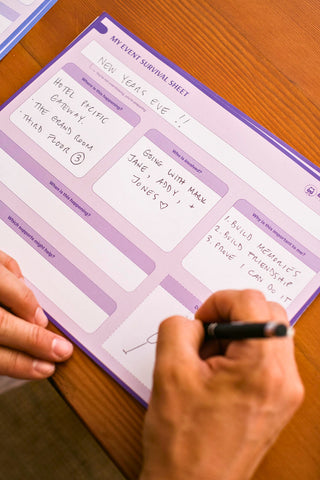 MY EVENT SURVIVAL SHEET
NEW YEARS EVE !!
Where is this happening?
HOTEL PACIFIC
GATEWAY.
. THE GRAND ROOM
. THIRD FLOOR 3
Who is involved?
GOING WITH MARK
JANE, ADDY, +
JONES ♡
Why is this important to me?
1. BUILD MEMORIES
2. BUILD FRIENDSHIP
3. PROVE I
CAN DO IT
When is this happening?
Which supports might help?